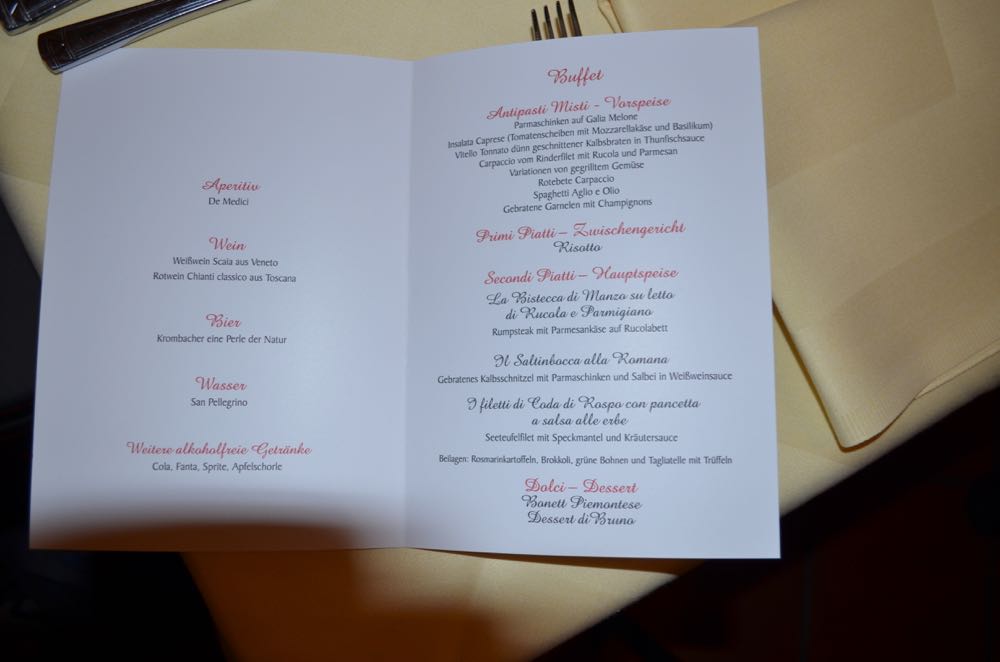 Aperitiv
De Medici
Wein
Weißwein Scaia aus Veneto
Rotwein Chianti classico aus Toscana
Bier
Krombacher eine Perle der Natur
Wasser
San Pellegrino
Weitere alkoholfreie Getränke
Cola, Fanta, Sprite, Apfelschorle
Buffet
Antipasti Misti - Vorspeise
Parmaschinken auf Galia Melone
Insalata Caprese (Tomatenscheiben mit Mozzarellakäse und Basilikum)
Vitello Tonnato dünn geschnittener Kalbsbraten in Thunfischsauce
Carpaccio vom Rinderfilet mit Rucola und Parmesan
Variationen von gegrilltem Gemüse
Rotebete Carpaccio
Spaghetti Aglio e Olio
Gebratene Garnelen mit Champignons
Primi Piatti – Zwischengericht
Risotto
Secondi Piatti – Hauptspeise
La Bistecca di Manzo su letto
di Rucola e Parmigiano
Rumpsteak mit Parmesankäse auf Rucolabett
Il Saltinbocca alla Romana
Gebratenes Kalbsschnitzel mit Parmaschinken und Salbei in Weißweinsauce
I filetti di Coda di Rospo con pancetta
a salsa alle erbe
Seeteufelfilet mit Speckmantel und Kräutersauce
Beilagen: Rosmarinkartoffeln, Brokkoli, grüne Bohnen und Tagliatelle mit Trüffeln
Dolci – Dessert
Bonett Piemontese
Dessert di Bruno